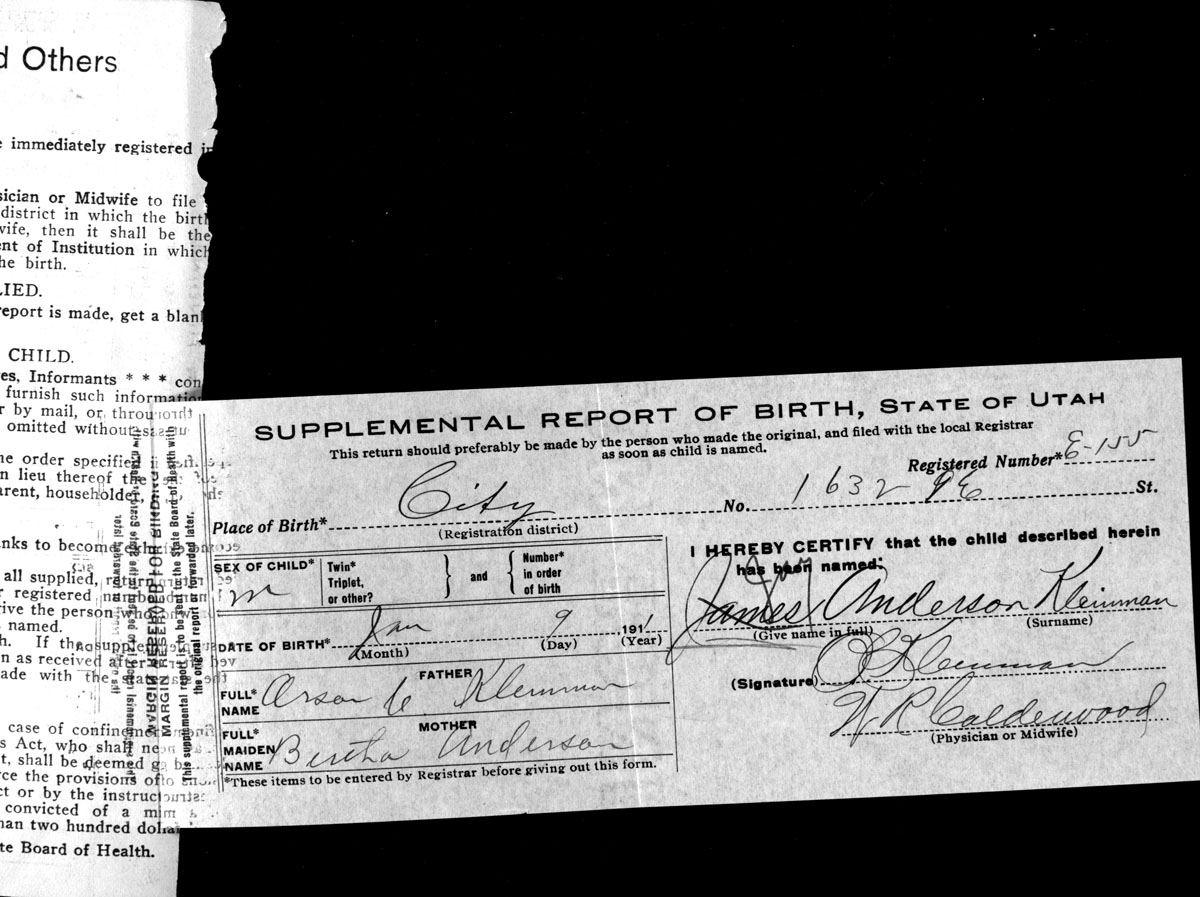 d Others
immediately registered in
sician or Midwife to file
district in which the birth
wife, then it shall be the
ent of Institution in which
he birth.
LIED.
report is made, get a blan
CHILD.
es, Informants * * * con
furnish such information
r by mail, or throu
omitted without
ne order specified
n lieu thereof the
arent, householder,
nks to become
all supplied, return
r registered number
rive the person who
s named.
h. If the supple
n as received after
ade with the sta
case of confinement
s Act, who shall ne
t, shall be deemed g
rce the provisions of
ct or by the instruc
convicted of a mi
han two hundred dolla
te Board of Health.
MARGIN RESERVED FOR BINDING
This supplemental report is to be sent to the State Board of Health with
the original report or forwarded later.
SUPPLEMENTAL REPORT OF BIRTH, STATE OF UTAH
This return should preferably be made by the person who made the original, and filed with the local Registrar
as soon as child is named.
Registered Number* E-155
Place of Birth* City No. 1632 9E St.
(Registration district)
SEX OF CHILD* m
Twin* Triplet, or other? } and { Number* in order of birth
DATE OF BIRTH* Jan 9 1911
(Month) (Day) (Year)
FATHER
FULL* NAME Orson C Kleinman
MOTHER
FULL* MAIDEN NAME Bertha Anderson
*These items to be entered by Registrar before giving out this form.
I HEREBY CERTIFY that the child described herein
has been named:
James Anderson Kleinman
(Give name in full) (Surname)
(Signature) O C Kleinman
W R Calderwood
(Physician or Midwife)